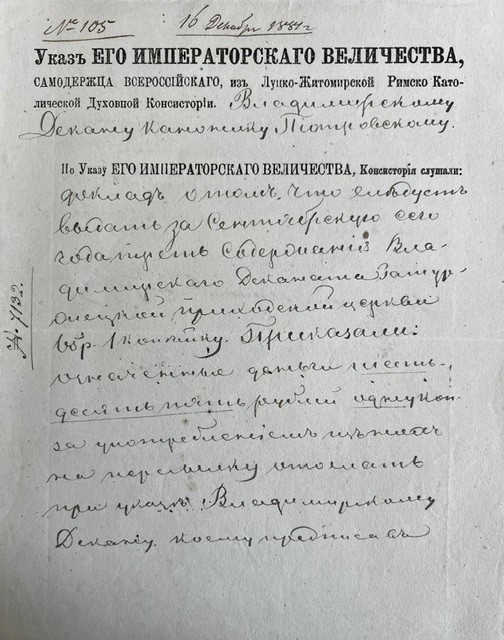 № 105
16 Декабр 1881 г
Указъ ЕГО ИМПЕРАТОРСКАГО ВЕЛИЧЕСТВА,
САМОДЕРЖЦА ВСЕРОССІЙСКАГО, изъ Луцко-Житомирской Римско-Като-
лической Духовной Консисторіи. Владимирскому
Декану Канонику Піотровскому.
По Указу ЕГО ИМПЕРАТОРСКАГО ВЕЛИЧЕСТВА, Консисторія слушали:
докладъ о томъ, что слѣдуетъ
выдать за Сентябрскую сего
года треть Содержанія Вла-
димирскаго Деканата Затур-
нецкой приходской церкви
65 р. 1 копѣйку. Приказали:
означенные деньги шесть-
десятъ пять рублей одну коп.
за употребленіемъ изъ нихъ
на пересылку отослать
при указѣ Владимирскому
Декану, коему предписавъ
№ 7132.